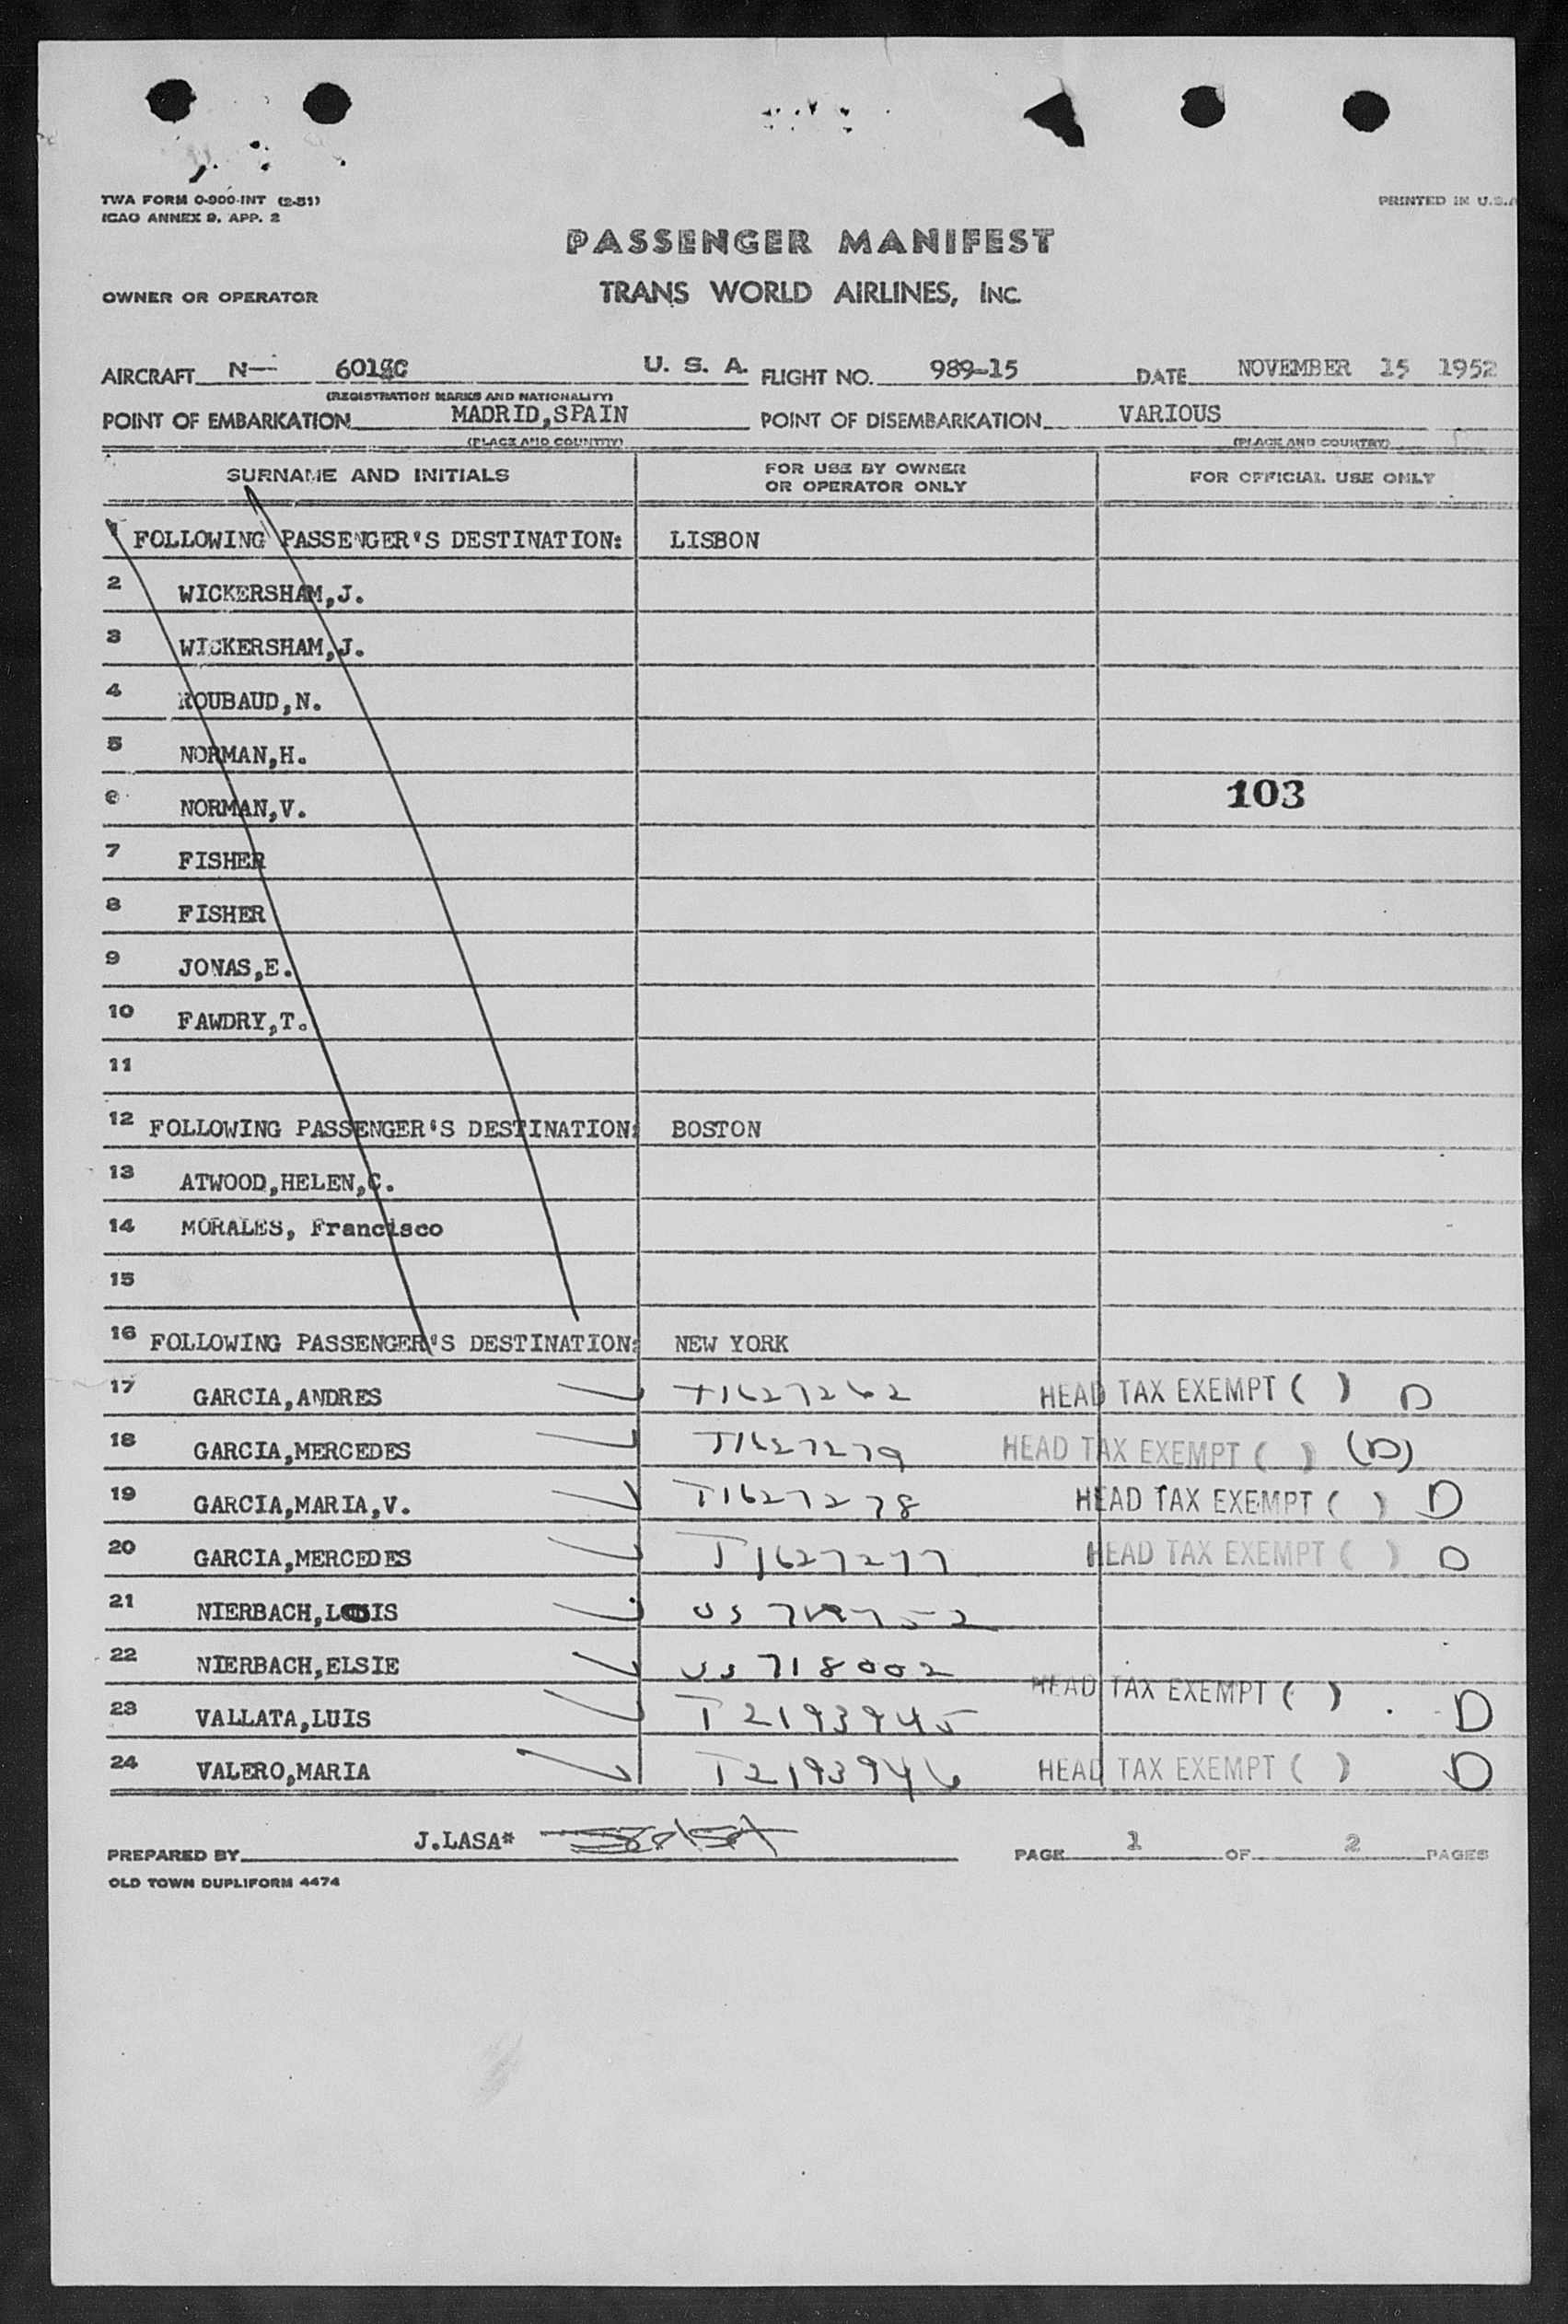 TWA FORM O-900-INT (2-51)
ICAO ANNEX 9, APP. 2
PRINTED IN U.S.A
PASSENGER MANIFEST
OWNER OR OPERATOR TRANS WORLD AIRLINES, INC.
AIRCRAFT N— U. S. A. FLIGHT NO. 989-15 DATE NOVEMBER 15 1952
(REGISTRATION MARKS AND NATIONALITY)
POINT OF EMBARKATION MADRID,SPAIN POINT OF DISEMBARKATION VARIOUS
(PLACE AND COUNTRY) (PLACE AND COUNTRY)
SURNAME AND INITIALS FOR USE BY OWNER OR OPERATOR ONLY FOR OFFICIAL USE ONLY
1 FOLLOWING PASSENGER'S DESTINATION: LISBON
2 WICKERSHAM,J.
3 WICKERSHAM,J.
4 ROUBAUD,N.
5 NORMAN,H.
6 NORMAN,V. 103
7 FISHER
8 FISHER
9 JONAS,E.
10 FAWDRY,T.
11
12 FOLLOWING PASSENGER'S DESTINATION: BOSTON
13 ATWOOD,HELEN,C.
14 MORALES, Francisco
15
16 FOLLOWING PASSENGER'S DESTINATION: NEW YORK
17 GARCIA,ANDRES T1627262 HEAD TAX EXEMPT ( ) D
18 GARCIA,MERCEDES T1627279 HEAD TAX EXEMPT ( ) (D)
19 GARCIA,MARIA,V. T1627278 HEAD TAX EXEMPT ( ) D
20 GARCIA,MERCEDES T1627277 HEAD TAX EXEMPT ( ) D
21 NIERBACH,LOUIS US
22 NIERBACH,ELSIE US 718002
23 VALLATA,LUIS T2193945 HEAD TAX EXEMPT ( ) D
24 VALERO,MARIA T2193946 HEAD TAX EXEMPT ( ) D
PREPARED BY J.LASA* PAGE 1 OF 2 PAGES
OLD TOWN DUPLIFORM 4474